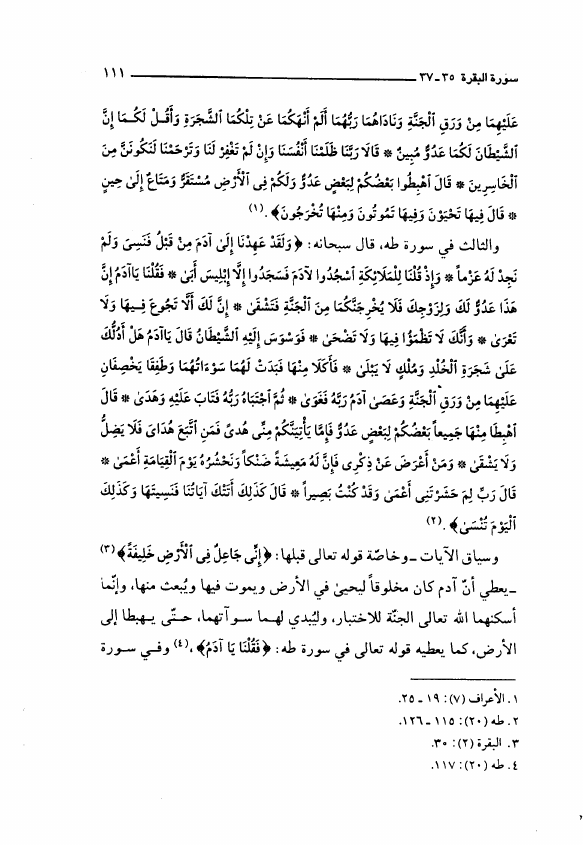 سورة البقرة ٣٥-٣٧ ١١١
عَلَيْهِمَا مِنْ وَرَقِ الْجَنَّةِ وَنَادَاهُمَا رَبُّهُمَا أَلَمْ أَنْهَكُمَا عَنْ تِلْكُمَا الشَّجَرَةِ وَأَقُلْ لَكُمَا إِنَّ
الشَّيْطَانَ لَكُمَا عَدُوٌّ مُبِينٌ * قَالَا رَبَّنَا ظَلَمْنَا أَنْفُسَنَا وَإِنْ لَمْ تَغْفِرْ لَنَا وَتَرْحَمْنَا لَنَكُونَنَّ مِنَ
الْخَاسِرِينَ * قَالَ اهْبِطُوا بَعْضُكُمْ لِبَعْضٍ عَدُوٌّ وَلَكُمْ فِى الْأَرْضِ مُسْتَقَرٌّ وَمَتَاعٌ إِلَىٰ حِينٍ
* قَالَ فِيهَا تَحْيَوْنَ وَفِيهَا تَمُوتُونَ وَمِنْهَا تُخْرَجُونَ﴾.(١)
والثالث في سورة طه، قال سبحانه: ﴿وَلَقَدْ عَهِدْنَا إِلَىٰ آدَمَ مِنْ قَبْلُ فَنَسِىَ وَلَمْ
نَجِدْ لَهُ عَزْماً * وَإِذْ قُلْنَا لِلْمَلَائِكَةِ اسْجُدُوا لآدَمَ فَسَجَدُوا إِلَّا إِبْلِيسَ أَبَىٰ * فَقُلْنَا يَاآدَمُ إِنَّ
هَذَا عَدُوٌّ لَكَ وَلِزَوْجِكَ فَلَا يُخْرِجَنَّكُمَا مِنَ الْجَنَّةِ فَتَشْقَىٰ * إِنَّ لَكَ أَلَّا تَجُوعَ فِيهَا وَلَا
تَعْرَىٰ * وَأَنَّكَ لَا تَظْمَؤُا فِيهَا وَلَا تَضْحَىٰ * فَوَسْوَسَ إِلَيْهِ الشَّيْطَانُ قَالَ يَاآدَمُ هَلْ أَدُلُّكَ
عَلَىٰ شَجَرَةِ الْخُلْدِ وَمُلْكٍ لَا يَبْلَىٰ * فَأَكَلَا مِنْهَا فَبَدَتْ لَهُمَا سَوْءَاتُهُمَا وَطَفِقَا يَخْصِفَانِ
عَلَيْهِمَا مِنْ وَرَقِ الْجَنَّةِ وَعَصَىٰ آدَمُ رَبَّهُ فَغَوَىٰ * ثُمَّ اجْتَبَاهُ رَبُّهُ فَتَابَ عَلَيْهِ وَهَدَىٰ * قَالَ
اهْبِطَا مِنْهَا جَمِيعاً بَعْضُكُمْ لِبَعْضٍ عَدُوٌّ فَإِمَّا يَأْتِيَنَّكُمْ مِنِّى هُدىً فَمَنِ اتَّبَعَ هُدَاىَ فَلَا يَضِلُّ
وَلَا يَشْقَىٰ * وَمَنْ أَعْرَضَ عَنْ ذِكْرِى فَإِنَّ لَهُ مَعِيشَةً ضَنْكاً وَنَحْشُرُهُ يَوْمَ الْقِيَامَةِ أَعْمَىٰ *
قَالَ رَبِّ لِمَ حَشَرْتَنِى أَعْمَىٰ وَقَدْ كُنْتُ بَصِيراً * قَالَ كَذَلِكَ أَتَتْكَ آيَاتُنَا فَنَسِيتَهَا وَكَذَلِكَ
الْيَوْمَ تُنْسَىٰ﴾.(٢)
وسياق الآيات -وخاصّة قوله تعالى قبلها: ﴿إِنِّى جَاعِلٌ فِى الْأَرْضِ خَلِيفَةً﴾(٣)
-يعطي أنّ آدم كان مخلوقاً ليحيىٰ في الأرض ويموت فيها ويُبعث منها، وإنّما
أسكنهما الله تعالى الجنّة للاختبار، وليُبدي لهما سوآتهما، حتّى يهبطا إلى
الأرض، كما يعطيه قوله تعالى في سورة طه: ﴿فَقُلْنَا يَا آدَمُ﴾،(٤) وفي سورة
١. الأعراف (٧): ١٩-٢٥.
٢. طه (٢٠): ١١٥-١٢٦.
٣. البقرة (٢): ٣٠.
٤. طه (٢٠): ١١٧.